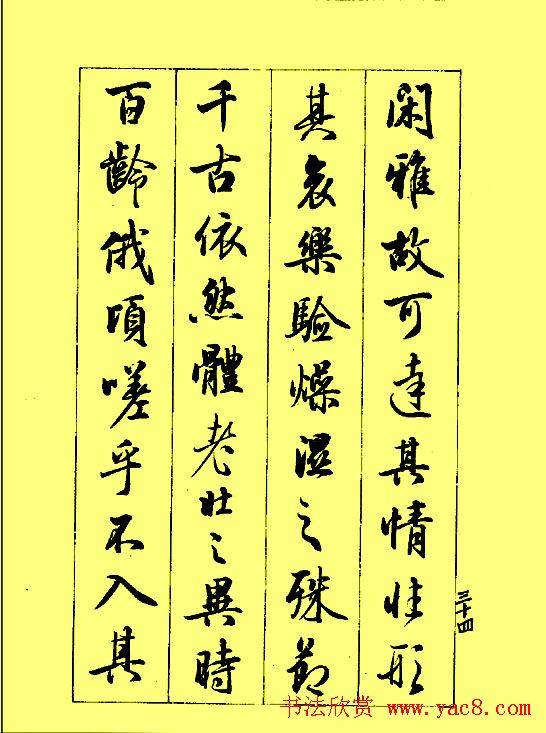 閑雅故可達其情性形
其哀樂驗燥湿之殊節
千古依然體老壯之異時
百齡俄頃嗟乎不入其
三十四
书法欣赏 www.yac8.com